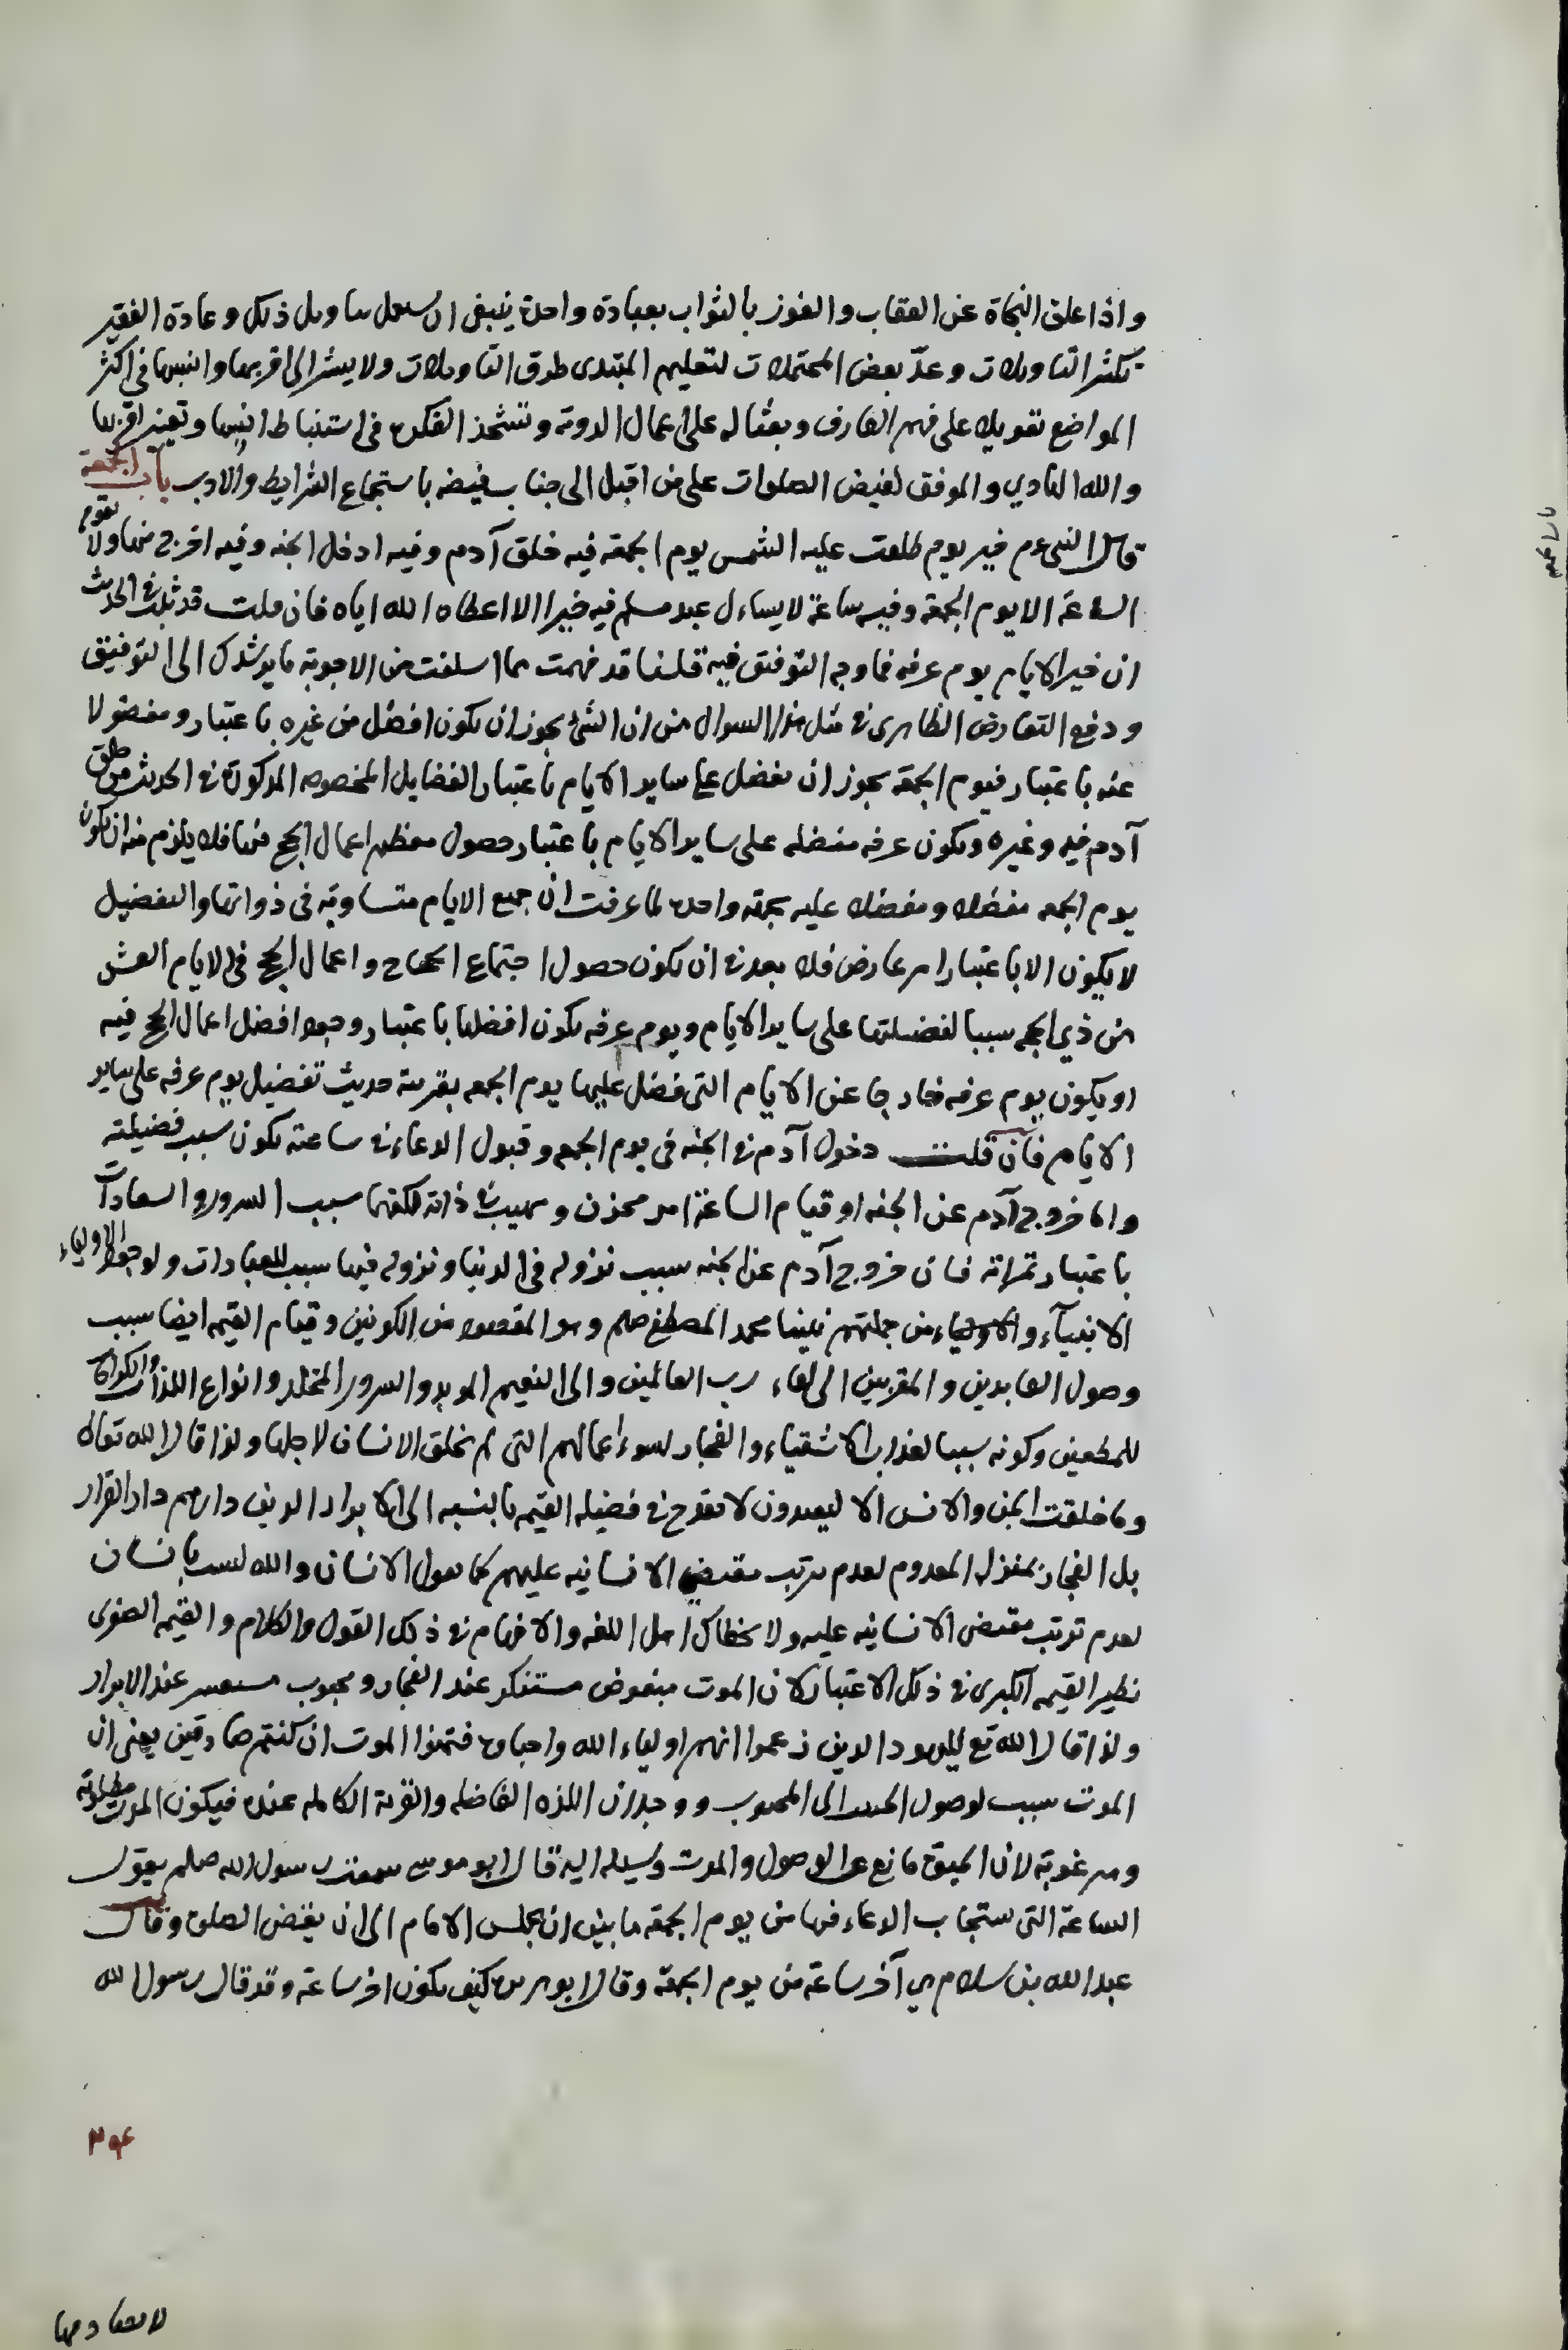 واذا علق النجاة عن العقاب والفوز بالثواب بعبادة واحدة ينبغى ان ذلك وعادة الفقير
تكثر التاويلات وعدّ بعض المحتملات لتعليم المبتدى طرق التاويلات ولا يشير الى اقربها وانسبها فى اكثر
المواضع تعويلا على فهم العارف وبعثا له على اعمال الروية وتشحذ الفكرة فى استنباط انسبها وتعيين اقربها
والله الهادي والموفق لفيض الصلوات على من اقبل الى جناب فيضه باستجماع الشرايط والاداب باب الجمعة
قال النبى عم خير يوم طلعت عليه الشمس يوم الجمعة فيه خلق آدم وفيه ادخل الجنه وفيه اخرج منها ولا تقوم
الساعة الا يوم الجمعة وفيه ساعة لا يساءل عبد مسلم فيه خيرا الا اعطاه الله اياه فان قلت قد ثبت فى الحديث
ان خير الايام يوم عرفه فما وجه التوفيق فيه قلنا قد فهمت مما اسلفت من الاجوبة ما يرشدك الى التوفيق
ودفع التعارض الظاهرى فى مثل هذا السوال من ان الشئ يجوز ان يكون افضل من غيره باعتبار ومفضولا
عنه باعتبار فيوم الجمعة يجوز ان يفضل على ساير الايام باعتبار الفضايل المخصوصه المذكورة فى الحديث من خلق
آدم فيه وغيره ويكون عرفه مفضله على ساير الايام باعتبار حصول معظم اعمال الحج فيها فلا يلزم منه ان يكون
يوم الجمعه مفضلا ومفضلا عليه بجهة واحدة لما عرفت ان جميع الايام متساوية فى ذواتها والتفضيل
لا يكون الا باعتبار امر عارض فلا بعد فى ان يكون حصول اجتماع الحجاج واعمال الحج فى الايام العشر
من ذي الحجه سببا لفضيلتها على ساير الايام ويوم عرفه يكون افضلها باعتبار وجود افضل اعمال الحج فيه
او يكون يوم عرفه خارجا عن الايام التى فضل عليها يوم الجمعه بقرينة حديث تفضيل يوم عرفه على ساير
الايام فان قلت دخول آدم فى الجنه فى يوم الجمعه وقبول الدعاء فى ساعته يكون سبب فضيلته
واما خروج آدم عن الجنه او قيام الساعة امر محزن ومهيب فى ذاته لكنهما سبب السرور والسعادات
باعتبار ثمراته فان خروج آدم عن الجنه سبب نزوله فى الدنيا ونزوله فيها سبب للعبادات ولوجود الاولياء
الانبيآء والاولياء من جملتهم نبينا محمد المصطفى صلعم وهو المقصود من الكونين وقيام القيمه ايضا سبب
وصول العابدين والمقربين الى لقاء رب العالمين والى النعيم المويد والسرور المخلد وانواع اللذات والكرامات
للمطيعين وكونه سببا لعذاب الاشقياء والفجار لسوء اعمالهم التى لم يخلق الانسان لاجلها ولذا قال الله تعالى
وما خلقت الجن والانس الا ليعبدون لا يقدح فى فضيله القيمه بالنسبه الى الابرار الذين دارهم دار القرار
بل الفجار بمنزله المعدوم لعدم ترتب مقتضى الانسانيه عليهم كما يقول الانسان والله لست بانسان
لعدم ترتب مقتضى الانسانيه عليه ولا يخطاك اهل اللغه والافهام فى ذلك القول والكلام والقيمه الصغرى
نظير القيمه الكبرى فى ذلك الاعتبار لان الموت مبغوض مستنكر عند الفجار ومحبوب عند الابرار
ولذا قال الله تع لليهود الذين زعموا انهم اولياء الله واحباوه فتمنوا الموت ان كنتم صادقين يعنى ان
الموت سبب لوصول الحبيب الى المحبوب ووجدان اللذه الفاضله والقربة الكامله عنده فيكون الموت مطلوبة
ومرغوبة لان الحيوة مانع عن الوصول والموت وسيله اليه قال ابو موسى سمعت رسول الله صلعم يقول
الساعة التى ستجاب الدعاء فيها من يوم الجمعة ما بين ان يجلس الامام الى ان يقضى الصلوة وقال
عبد الله بن سلام هي آخر ساعة من يوم الجمعة وقال ابو هريرة كيف يكون اخر ساعة وقد قال رسول الله
لا يصادفها